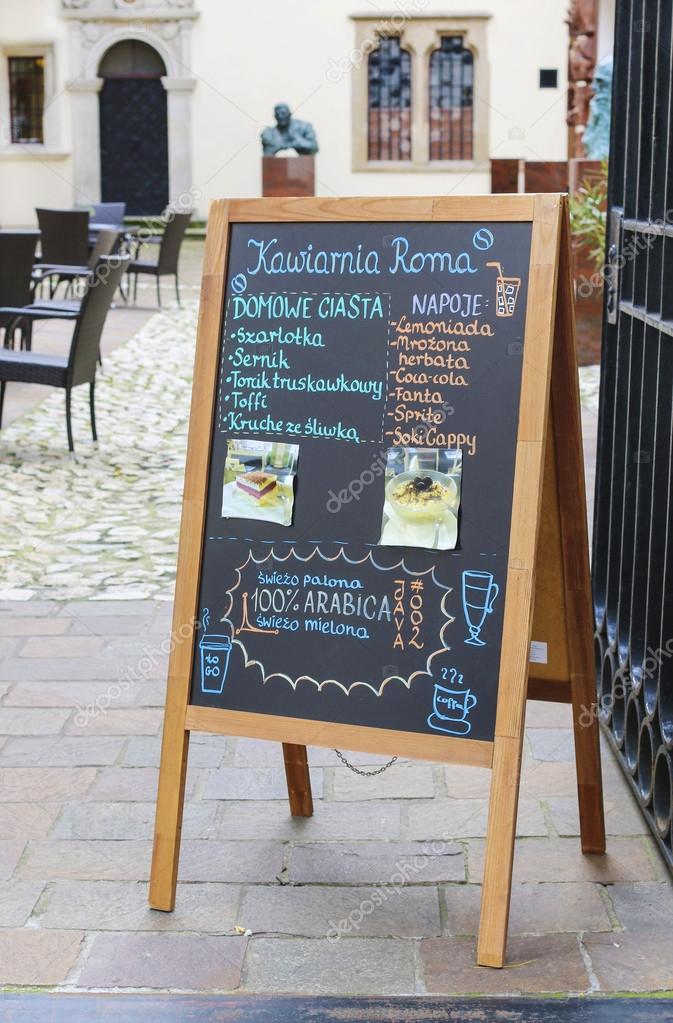 Kawiarnia Roma
DOMOWE CIASTA
•Szarlotka
•Sernik
•Torcik truskawkowy
•Toffi
•Kruche ze śliwką
NAPOJE:
-Lemoniada
-Mrożona
herbata
-Coca-cola
-Fanta
-Sprite
-Soki Cappy
świeżo palona
100% ARABICA
świeżo mielona
JAVA
#002
to
GO
coffe
depositphotos